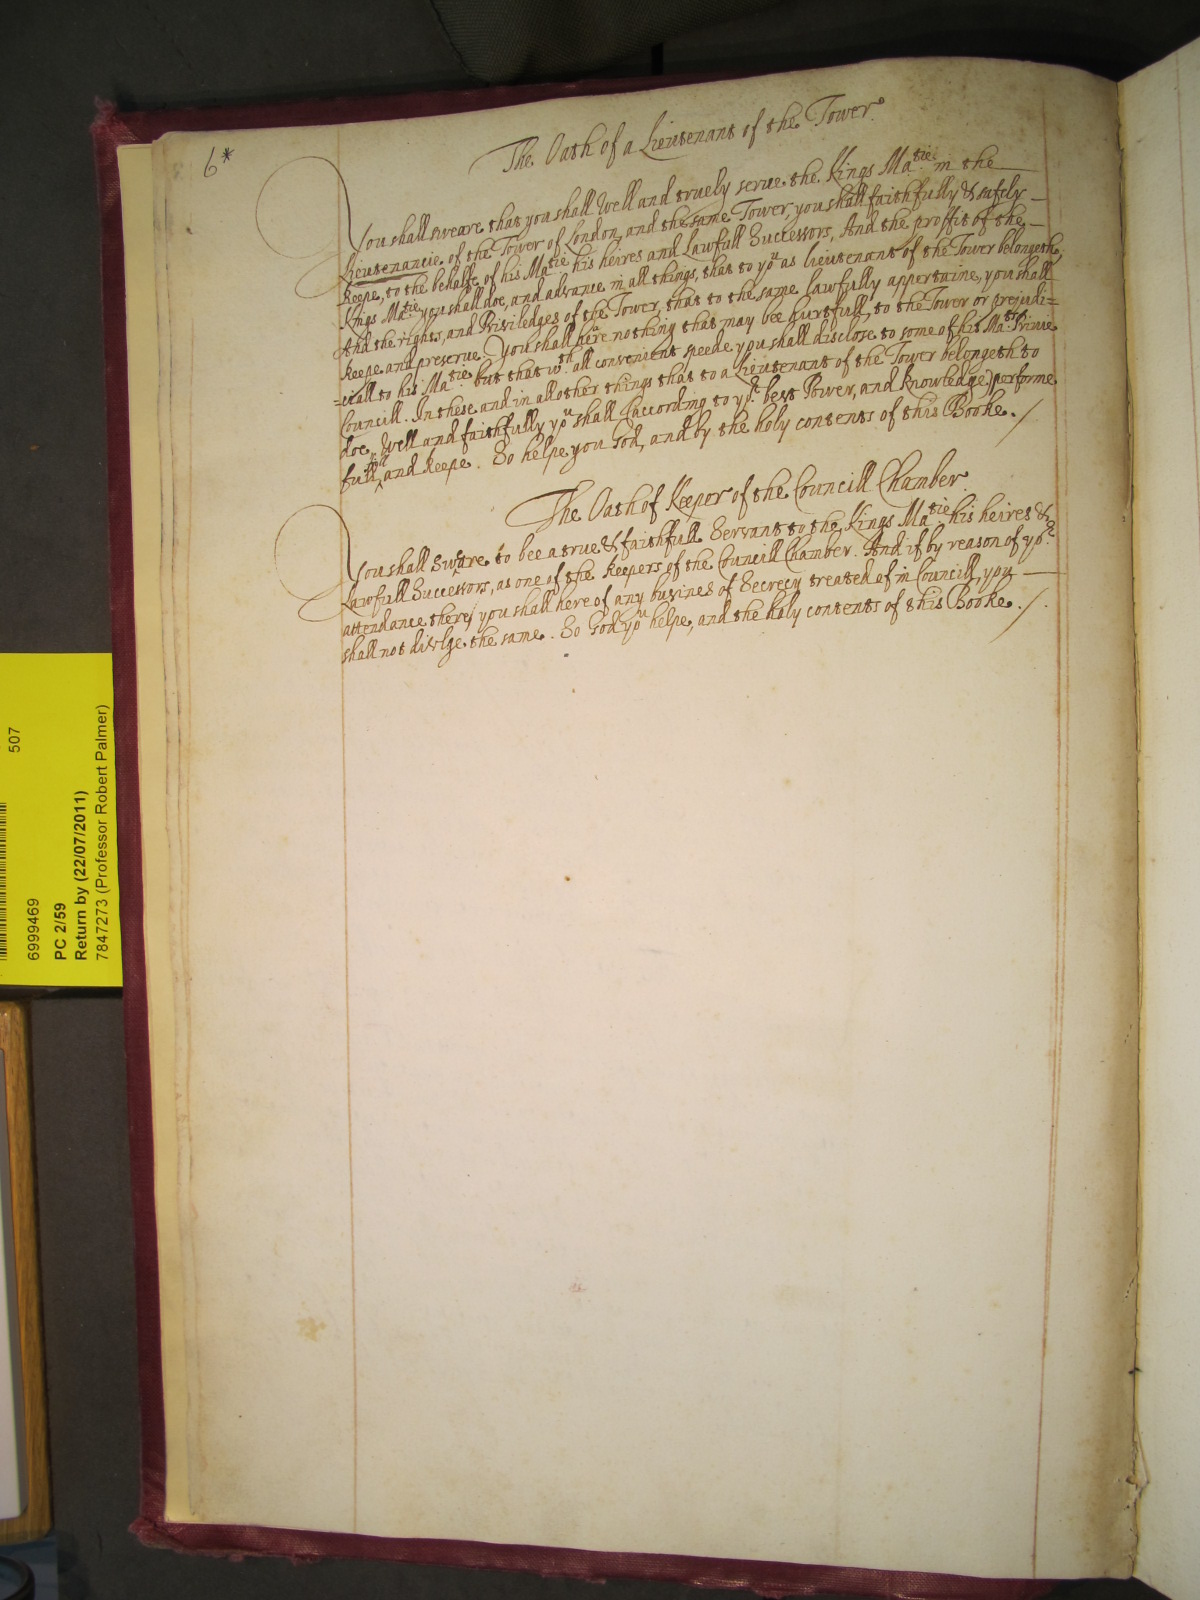 6*
The Oath of a Lieutenant of the Tower.
You shall sweare that you shall Well and truely serve the Kings Ma:tie in the
Lieutenancie of the Tower of London, and the same Tower, you shall faithfully & safely
keepe, to the behalfe of his Ma:tie his heires and Lawfull Successors, And the proffit of the
Kings Ma:tie you shall doe, and advance in all things, that to you as Lieutenant of the Tower belongeth,
And the rights, and Priviledges of the Tower, that to the same lawfully appertaine, you shall
keepe and preserve. You shall heere nothing that may bee hurtfull to the Tower or prejudi=
=ciall to his Ma:tie but that wth all convenient speede you shall disclose to some of his Ma:ts Privie
Councill. In these and in all other things that to a Lieutenant of the Tower belongeth to
doe, Well and faithfully yo.u shall (according to yo.r best Power, and knowledge) performe
full, and keepe. So helpe you God, and by the holy contents of this Booke./
The Oath of Keeper of the Councill Chamber.
You shall Sweare to bee a true & faithfull Servant to the Kings Ma:tie his heires &
Lawfull Successors, as one of the Keepers of the Councill Chamber. And if by reason of yo.r
attendance there, you shall here of any busines of Secrecy treated of in Councill, you
shall not divlge the same. So God yo.u helpe, and the holy contents of this Booke./.
507
6999469
PC 2/59
Return by (22/07/2011)
7847273 (Professor Robert Palmer)